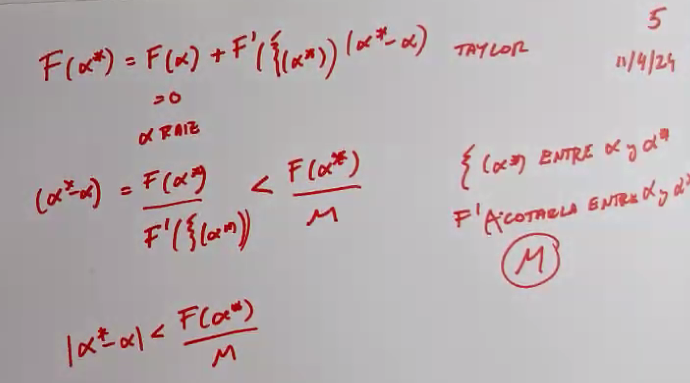 5
F(α*) = F(α) + F'(ξ(α*)) (α*-α) TAYLOR 11/4/24
=0
α RAIZ
(α*-α) = F(α*) / F'(ξ(α*)) < F(α*) / M
ξ(α*) ENTRE α y α*
F' ACOTARLA ENTRE α y α*
M
|α*-α| < F(α*) / M